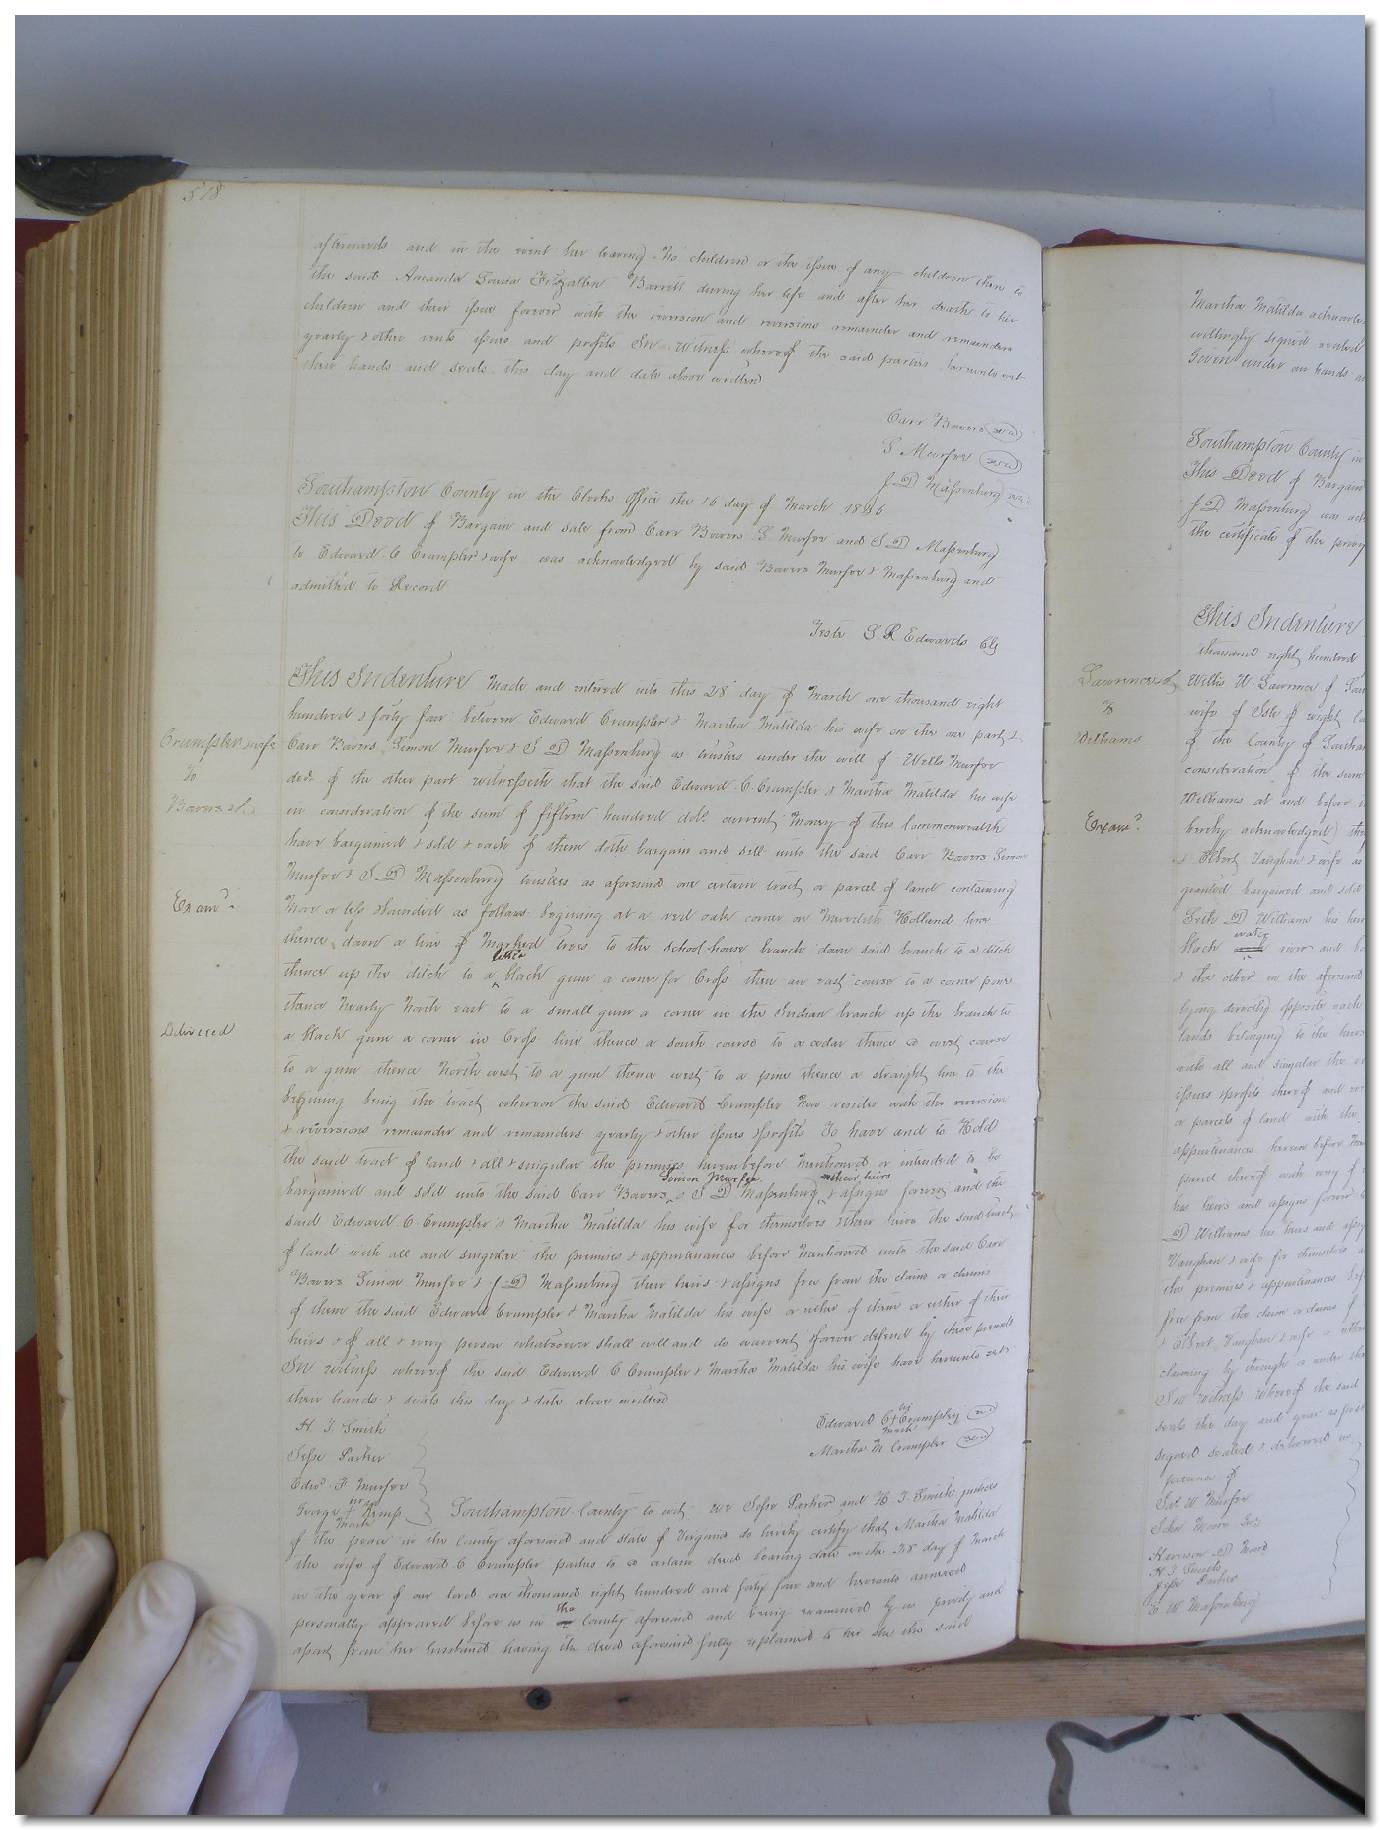 578
afterwards and in the event her leaving No children or the issue of any children then to
the said Amanda Louisa Fitzallen Barrett during her life and after her death to her
children and their issue forever with the reversion and reversions remainder and remainders
yearly & other rents issues and profits In Witness whereof the said parties hereunto set
their hands and seals this day and date above written
Carr Bowers seal
S Murfee seal
J D Massenburg seal
Southampton County in the Clerks Office the 16 day of March 1845
This Deed of Bargain and sale from Carr Bowers S Murfee and J D Massenburg
to Edward C Crumpler & wife was acknowledged by said Bowers Murfee & Massenburg and
admitted to Record
Teste S R Edwards Clk
This Indenture Made and entered into this 28 day of March one thousand eight
hundred & forty four between Edward Crumpler & Martha Matilda his wife on the one part &
Crumpler & wife
To
Bowers &
Carr Bowers Simon Murfee & J D Massenburg as trustees under the will of Wells Murfee
decd of the other part witnesseth that the said Edward C Crumpler & Martha Matilda his wife
in consideration of the sum of fifteen hundred dols current Money of this Commonwealth
have bargained & sold & each of them doth bargain and sell unto the said Carr Bowers Simon
Murfee & J D Massenburg trustees as aforesaid one certain tract or parcel of land containing
Examd
More or less & bounded as follows begining at a red oak corner on Meredith Holland line
thence down a line of Marked trees to the school house branch down said branch to a ditch
thence up the ditch to a little black gum a corner for Cross then an east course to a corner pine
thence Nearly North east to a small gum a corner in the Indian branch up the branch to
Delivered
a black gum a corner in Cross line thence a south course to a cedar thence a west course
to a gum thence North west to a gum thence west to a pine thence a straight line to the
begining being the tract whereon the said Edward Crumpler Now resides with the reversion
& reversions remainder and remainders yearly & other issues & profits To have and to Hold
the said tract of land & all & singular the premises herein before Mentioned or intended to be
bargained and sold unto the said Carr Bowers Simon Murfee & J D Massenburg & their heirs & assigns forever and the
said Edward C Crumpler & Martha Matilda his wife for themselves & their heirs the said tract
of land with all and singular the premises & appurtenances before Mentioned unto the said Carr
Bowers Simon Murfee & J D Massenburg their heirs & assigns free from the claim or claims
of them the said Edward Crumpler & Martha Matilda his wife or either of them or either of their
heirs & of all & every person whatsoever shall will and do warrent & forever defend by these presents
In witness whereof the said Edward C Crumpler & Martha Matilda his wife have hereunto set
their hands & seals this day & date above written
H. T. Smith
Edward C + Crumpler seal
his
mark
Jesse Parker
Martha M Crumpler seal
Edwd F Murfee
George + Kemp
his
mark
Southampton County to wit: we Jesse Parker and H T Smith justices
of the peace in the County aforesaid and state of Virginia do hereby certify that Martha Matilda
the wife of Edward C Crumpler parties to a certain deed bearing date on the 28 day of March
in the year of our lord one thousand eight hundred and forty four and hereunto annexed
personally appeared before us in the County aforesaid and being examined by us privily and
apart from her husband having the deed aforesaid fully explained to her she the said
Martha Matilda acknowle
willingly signed sealed
Given under our hands a
Southampton County in
This Deed of Bargain
J D Massenburg was ack
the certificate of the privy
This Indenture
thousand eight hundred
Lawrence &
To
Williams
Willis W Lawrence of Sou
wife of Isle of wight Co
of the County of Southam
consideration of the sum
Williams at and before
Examd
hereby acknowledged) th
& Elbert Vaughan & wife as
granted bargained and sold
Seth D Williams his heir
black water river and
& the other in the aforesaid
lying directly opposite each
lands belonging to the heirs
with all and singular the
issues & profits thereof and
or parcels of land with the
appurtenances herein before Men
parcel thereof with every
his heirs and assigns forever
D Williams his heirs and assig
Vaughan & wife for themselves
the premises & appurtenances bef
free from the claim or claims of
& Elbert Vaughan & wife or either
claiming by through or under the
In witness whereof the said
seals the day and year as first
signed sealed & delivered in
presence of
Sol W Murfee
Harrison D Moore
H. T. Smith
Jesse Parker
C W Massenburg